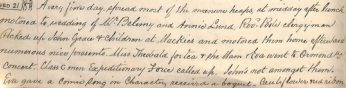 WED 21 ST A very fine day, spread most of the manure heaps at midday after lunch
motored to wedding of Mr Beleny and Annie Lund. Rev clergyman
Picked up John Grace & children at Mackies and motored them home afterwards
numerous nice presents. Miss Theobald for tea & she then & Eva went to Ormondy
Concert. Class C men Expeditionary Force called up. John's not amongst them.
Eva gave a comic song in Character, received a bouquet. Cecily